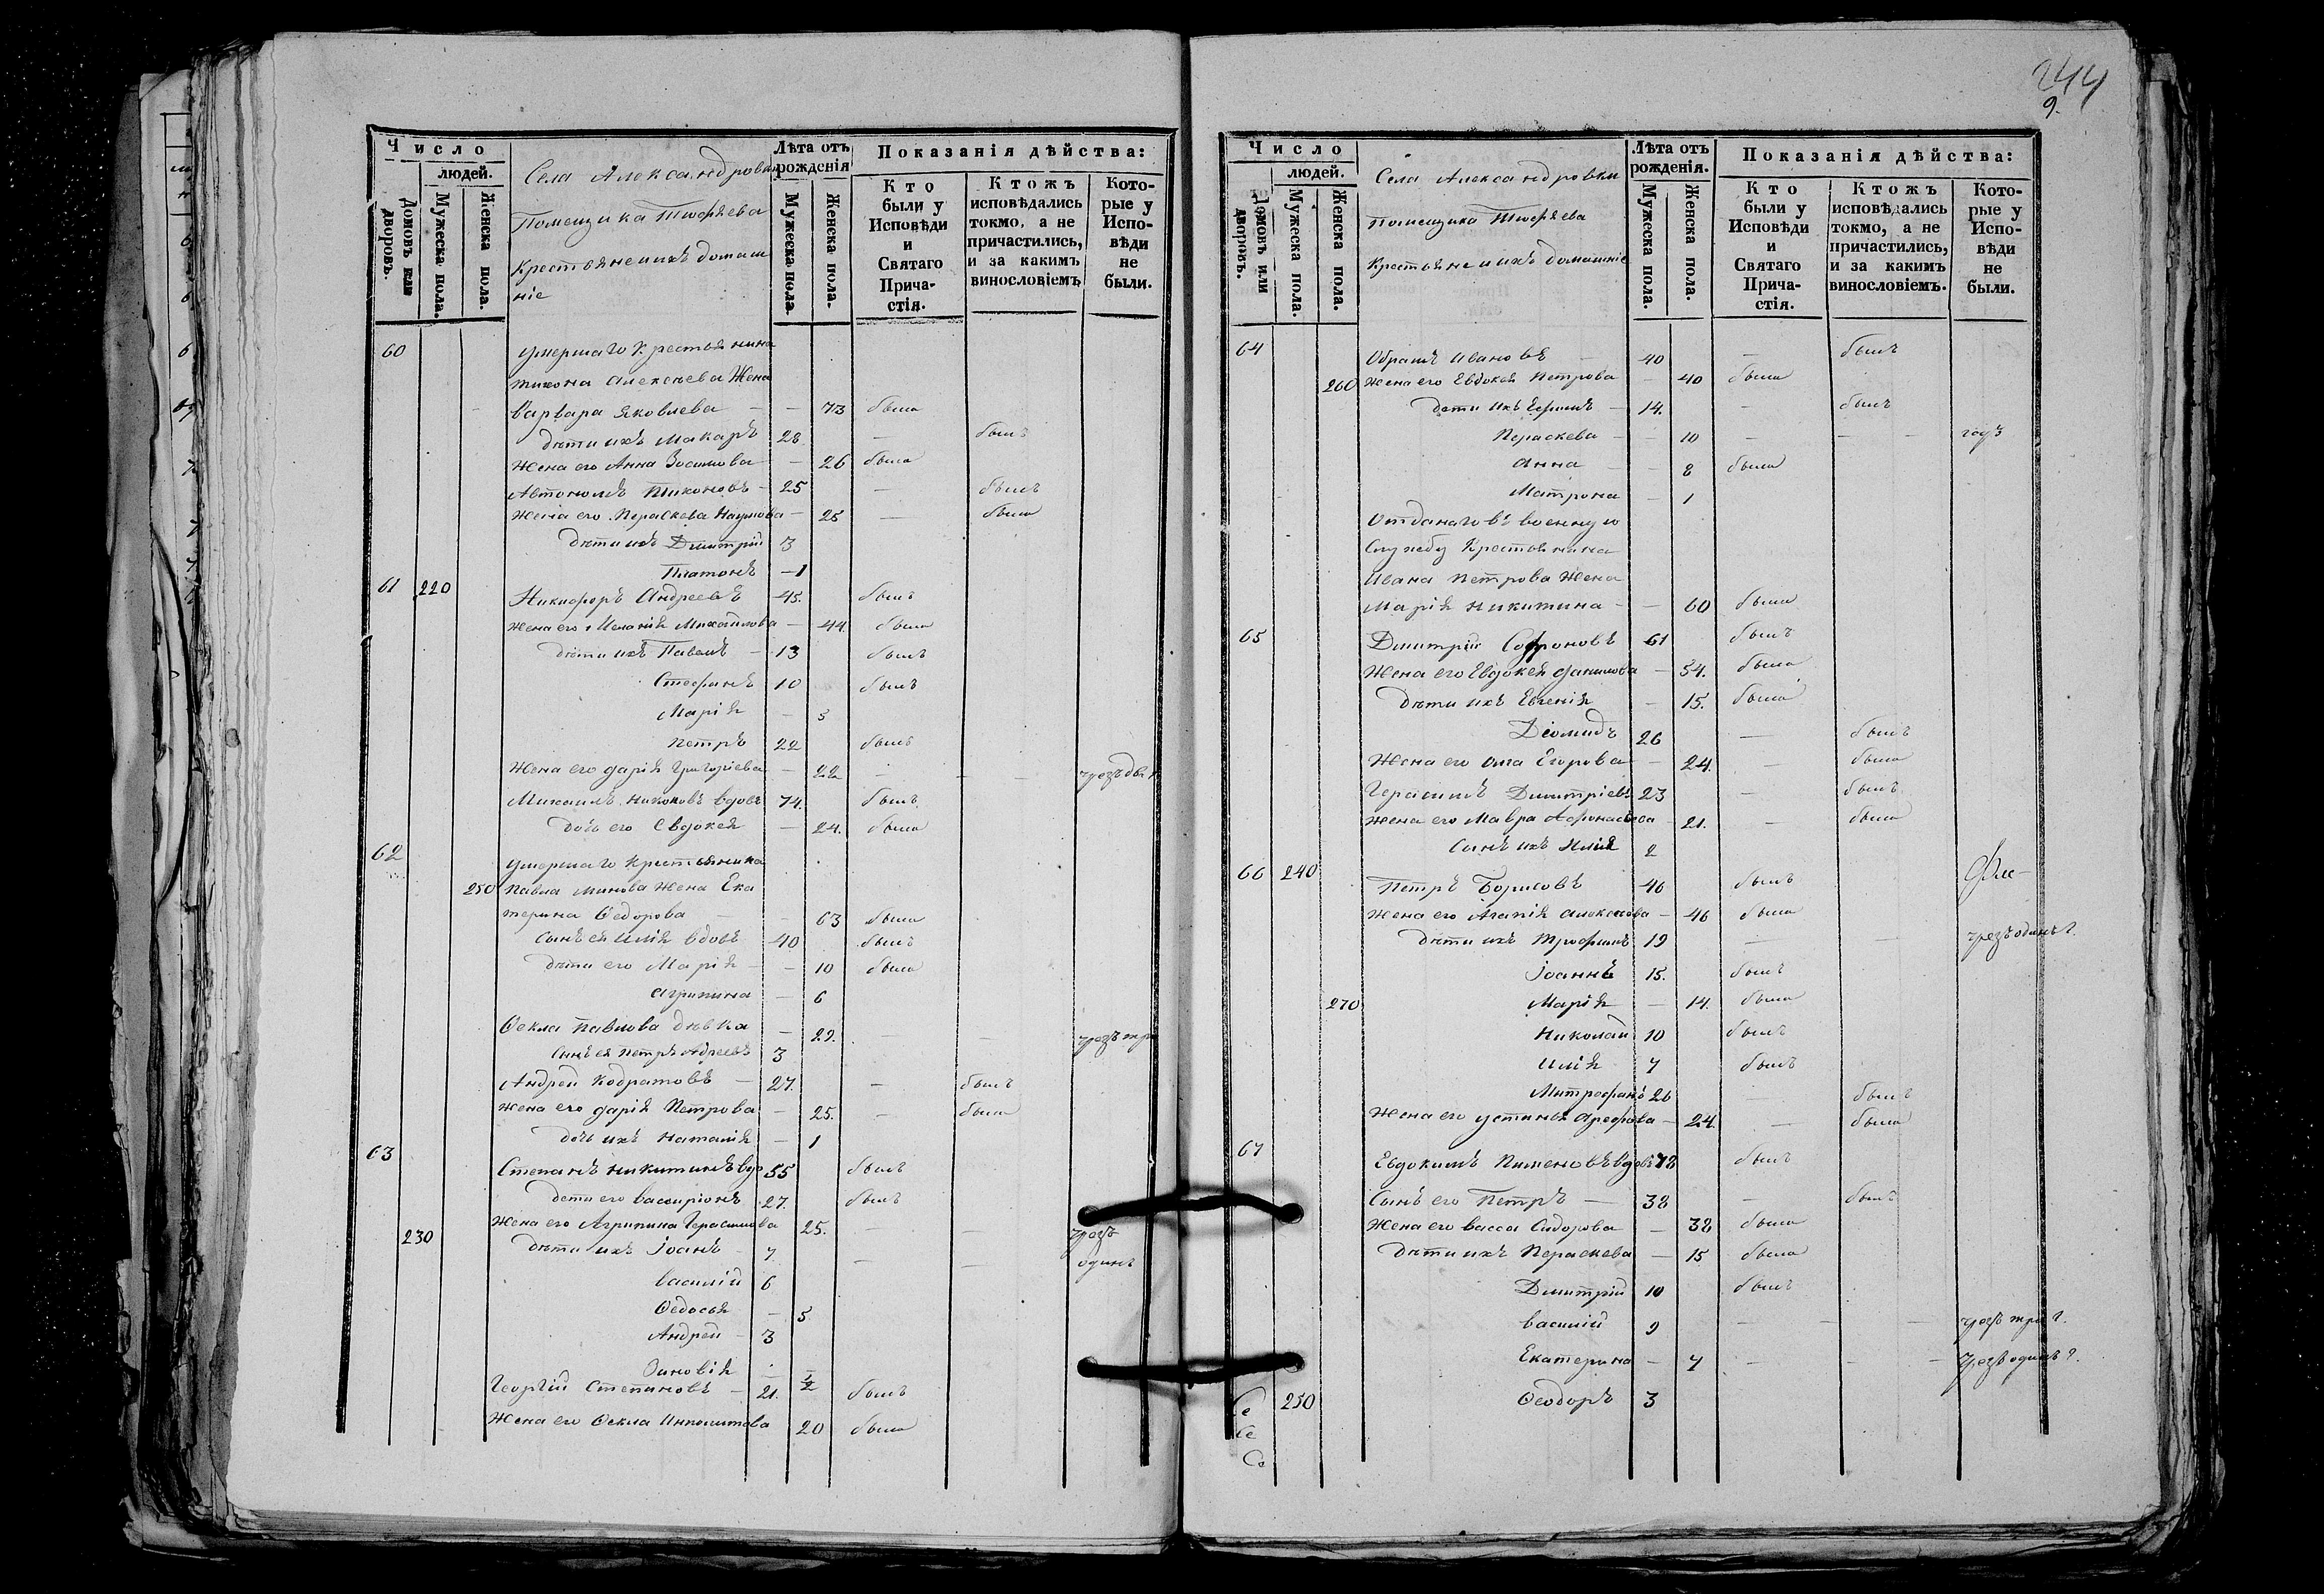 Число
людей.
Домовъ или дворовъ.
Мужеска пола.
Женска пола.
Села Александровки
Помещика Тюфѣева
Крестьяне ихъ домаш
ніе
Лѣта отъ рожденія
Мужеска пола.
Женска пола.
Показанія дѣйства:
Кто были у Исповѣди и Святаго Прича-стія.
Ктожъ исповѣдались токмо, а не причастились, и за какимъ винословіемъ
Кото-рые у Испо-вѣди не были.
60 умершаго Крестьянина
тихона алексеева Жена
Варвара яковлева — — 73 была
дѣти ихъ Макаръ 28 — былъ
Жена его Анна Зосимова — 26 была
Автономъ Тихоновъ — 25 — былъ
Жена его Пераскева Наумова — 25 — была
дѣти ихъ Дмитрий 3
Платонъ — 1
61 220 Никифоръ Андреевъ 45. былъ
Жена его Меланія Михайлова — 44 была
дѣти ихъ Павелъ — 13 былъ
Стефанъ 10 былъ
Марія — 5
Петръ 22 былъ
Жена его дарія Григоріева — 22 — — — чрезъ два
Михаилъ Никоновъ вдовъ 74. былъ
дочь его Евдокея — 24. была
62 умершаго крестьянина
250 Павла минова жена Ека
терина Ѳедорова — — 63 была
сынъ ея илія вдовъ 40 былъ
дѣти его Марія — — 10 была
агрипина — 6
Ѳекла Павлова дѣвка — 29. — — чрезъ тр
сынъ ея петръ Адреевъ 3
Андрей Кодратовъ — 27. — былъ
Жена его дарія Петрова — 25. — была
дочь ихъ наталія — 1
63 Степанъ никитинъ вдо 55 былъ
дети его вассиріонъ 27. былъ
Жена его Агрипина Герасимова 25. — — чрезъ
230 дѣти ихъ Іоанъ 7. — — одинъ
василій 6
Ѳедосья — 5
Андрей — 3
Зиновія — 1/2
Георгій Степановъ — 21. былъ
Жена его Ѳекла Ипполитова 20 была
244
9.
Число
людей.
Домовъ или дворовъ.
Мужеска пола.
Женска пола.
Села Александровки
Помещика Тюфѣева
Крестьяне ихъ домашніе
Лѣта отъ рожденія.
Мужеска пола.
Женска пола.
Показанія дѣйства:
Кто были у Исповѣди и Святаго Прича-стія.
Ктожъ исповѣдались токмо, а не причастились, и за какимъ винословіемъ.
Кото-рые у Испо-вѣди не были.
64 Ивановъ — 40 — былъ
260 Жена его Евдокея Петрова — 40 была
дети ихъ — 14. — былъ
Пераскева — — 10 — — — годъ
анна — — 8 была
Матрона — 1
Отданаго въ военную
Службу Крестьянина
Ивана Петрова Жена
Марія никитина — — 60 была
65 Дмитрій Софроновъ 61 былъ
Жена его Евдокея данилова — 54. была
дѣти ихъ Евгенія — 15. была
Діомидъ 26 — былъ
Жена его Олга Егорова — 24. — была
Герасимъ Димитріевъ 23 — былъ
Жена его Мавра Афонасьева 21. — была
Сынъ ихъ Илия 2
66 240 Петръ Борисовъ 46 былъ
Жена его Агапія алексеева — 46 была
дѣти ихъ Трофимъ 19 — — чрезъ одинъ г.
Іоаннъ 15. былъ
270 Марія — 14. была
Николай 10 былъ
илія 7 былъ
Митрофанъ 26 — былъ
Жена его устинья арефова — 24. — была
67 Евдокимъ Пименовъ вдовъ 78 былъ
Сынъ его Петръ — 38 — былъ
Жена его васса Сидорова — 38 была
дѣти ихъ Пераскева — 15 была
Димитрій 10 былъ
василій 9 — — — чрезъ три г.
Екатерина — 7 — — — чрезъ одинъ г.
250 Ѳеодоръ 3